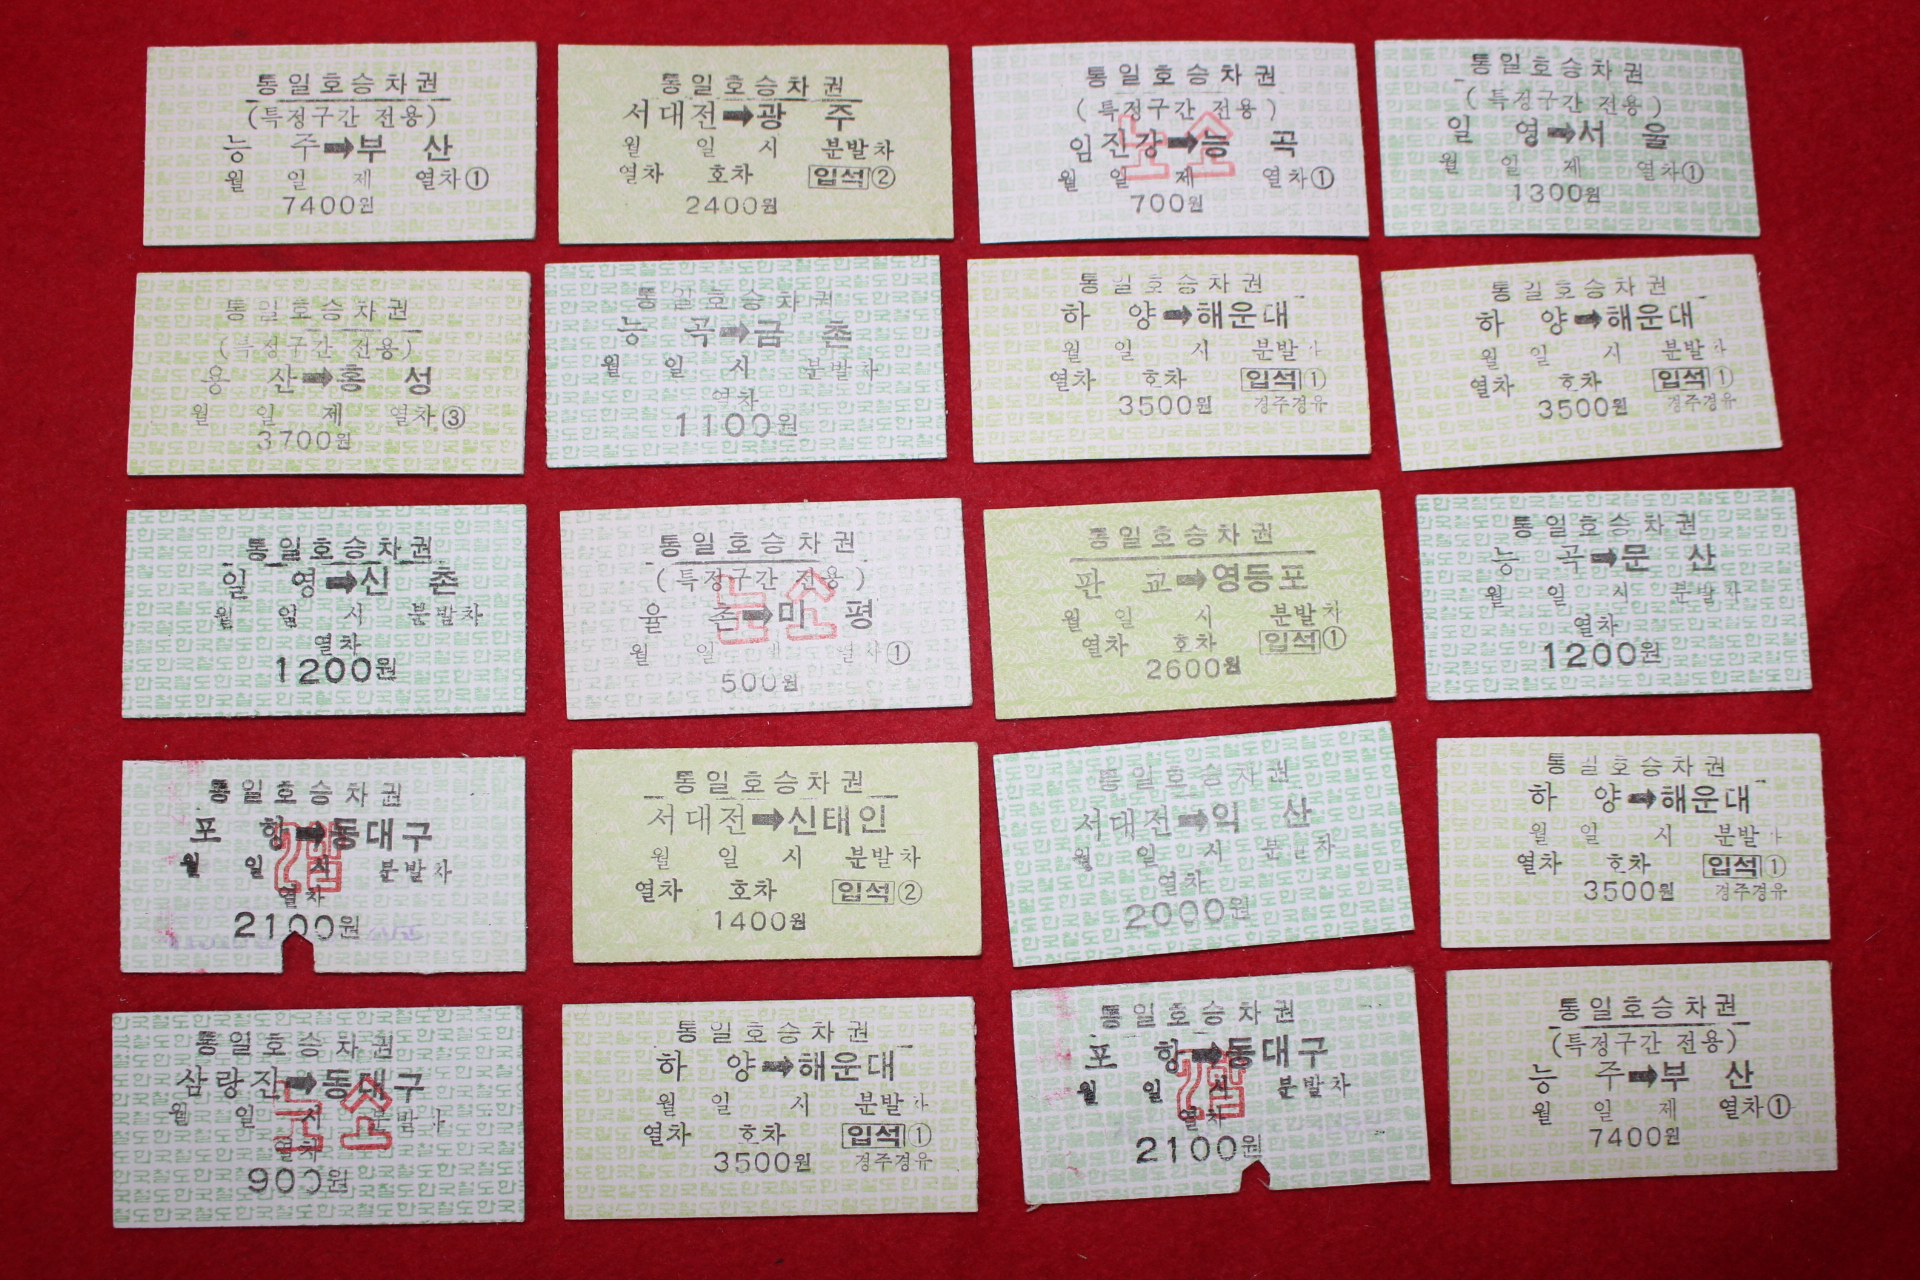 통일호승차권
(특정구간 전용)
능 주➡부 산
월 일 제 열차①
7400원
통일호승차권
서대전➡광 주
월 일 시 분발차
열차 호차 입석②
2400원
통일호승차권
(특정구간 전용)
노소
임진강➡능 곡
월 일 제 열차①
700원
통일호승차권
(특정구간 전용)
일 영➡서 울
월 일 제 열차①
1300원
통일호승차권
(특정구간 전용)
용 산➡홍 성
월 일 제 열차③
3700원
통일호승차권
능 곡➡금 촌
월 일 시 분발차
열차
1100원
통일호승차권
하 양➡해운대
월 일 시 분발차
열차 호차 입석①
3500원 경주경유
통일호승차권
하 양➡해운대
월 일 시 분발차
열차 호차 입석①
3500원 경주경유
통일호승차권
일 영➡신 촌
월 일 시 분발차
열차
1200원
통일호승차권
(특정구간 전용)
노소
율 촌➡미 평
월 일 제 열차①
500원
통일호승차권
판 교➡영등포
월 일 시 분발차
열차 호차 입석①
2600원
통일호승차권
능 곡➡문 산
월 일 시 분발차
열차
1200원
통일호승차권
포 항➡동대구
월 일 시 분발차
열차
2100원
통일호승차권
서대전➡신태인
월 일 시 분발차
열차 호차 입석②
1400원
통일호승차권
서대전➡익 산
월 일 시 분발차
열차
2000원
통일호승차권
하 양➡해운대
월 일 시 분발차
열차 호차 입석①
3500원 경주경유
통일호승차권
삼랑진➡동대구
월 일 시 분발차
노소
열차
900원
통일호승차권
하 양➡해운대
월 일 시 분발차
열차 호차 입석①
3500원 경주경유
통일호승차권
포 항➡동대구
월 일 시 분발차
열차
2100원
통일호승차권
(특정구간 전용)
능 주➡부 산
월 일 제 열차①
7400원